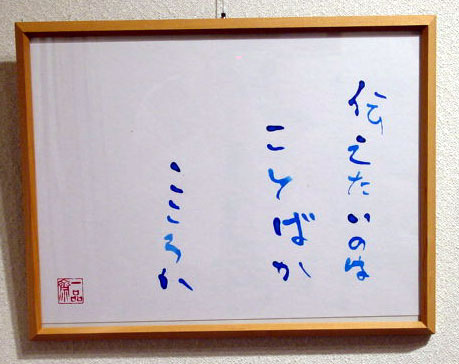 伝えたいのは
ことばか
こころか
一品
齋